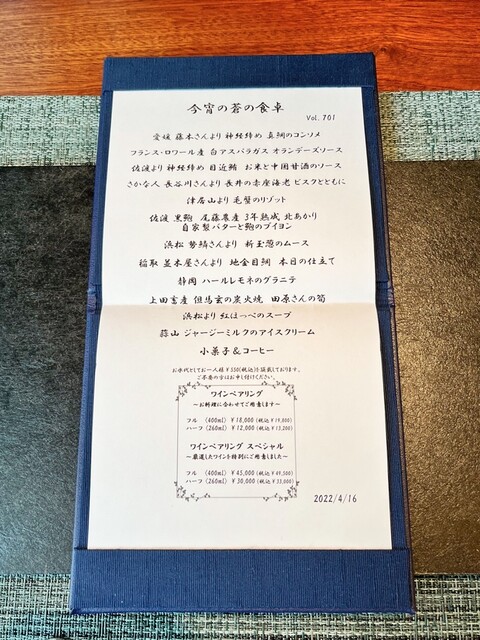 今宵の蒼の食卓
Vol. 701
愛媛 藤本さんより 神経締め 真鯛のコンソメ
フランス・ロワール産 白アスパラガス オランデーズソース
佐渡より 神経締め 目近鮪 お米と中国甘酒のソース
さかな人 長谷川さんより 長井の赤座海老 ビスクとともに
津居山より 毛蟹のリゾット
佐渡 黒鮑 尾藤農産 3年熟成 北あかり
自家製バターと鮑のブイヨン
浜松 勢鱗さんより 新玉葱のムース
稲取 並木屋さんより 地金目鯛 本日の仕立て
静岡 ハールレモネのグラニテ
上田畜産 但馬玄の炭火焼 田原さんの筍
浜松より 紅ほっぺのスープ
蒜山 ジャージーミルクのアイスクリーム
小菓子&コーヒー
お水代としてお一人様¥550(税込)を頂戴しております。
ご不要の方はお申し付けください。
ワインペアリング
～お料理に合わせてご用意します～
フル (400ml) ¥18,000 (税込¥19,800)
ハーフ (260ml) ¥12,000 (税込¥13,200)
ワインペアリング スペシャル
～厳選したワインを特別にご用意しました～
フル (400ml) ¥45,000 (税込¥49,500)
ハーフ (260ml) ¥30,000 (税込¥33,000)
2022/4/16